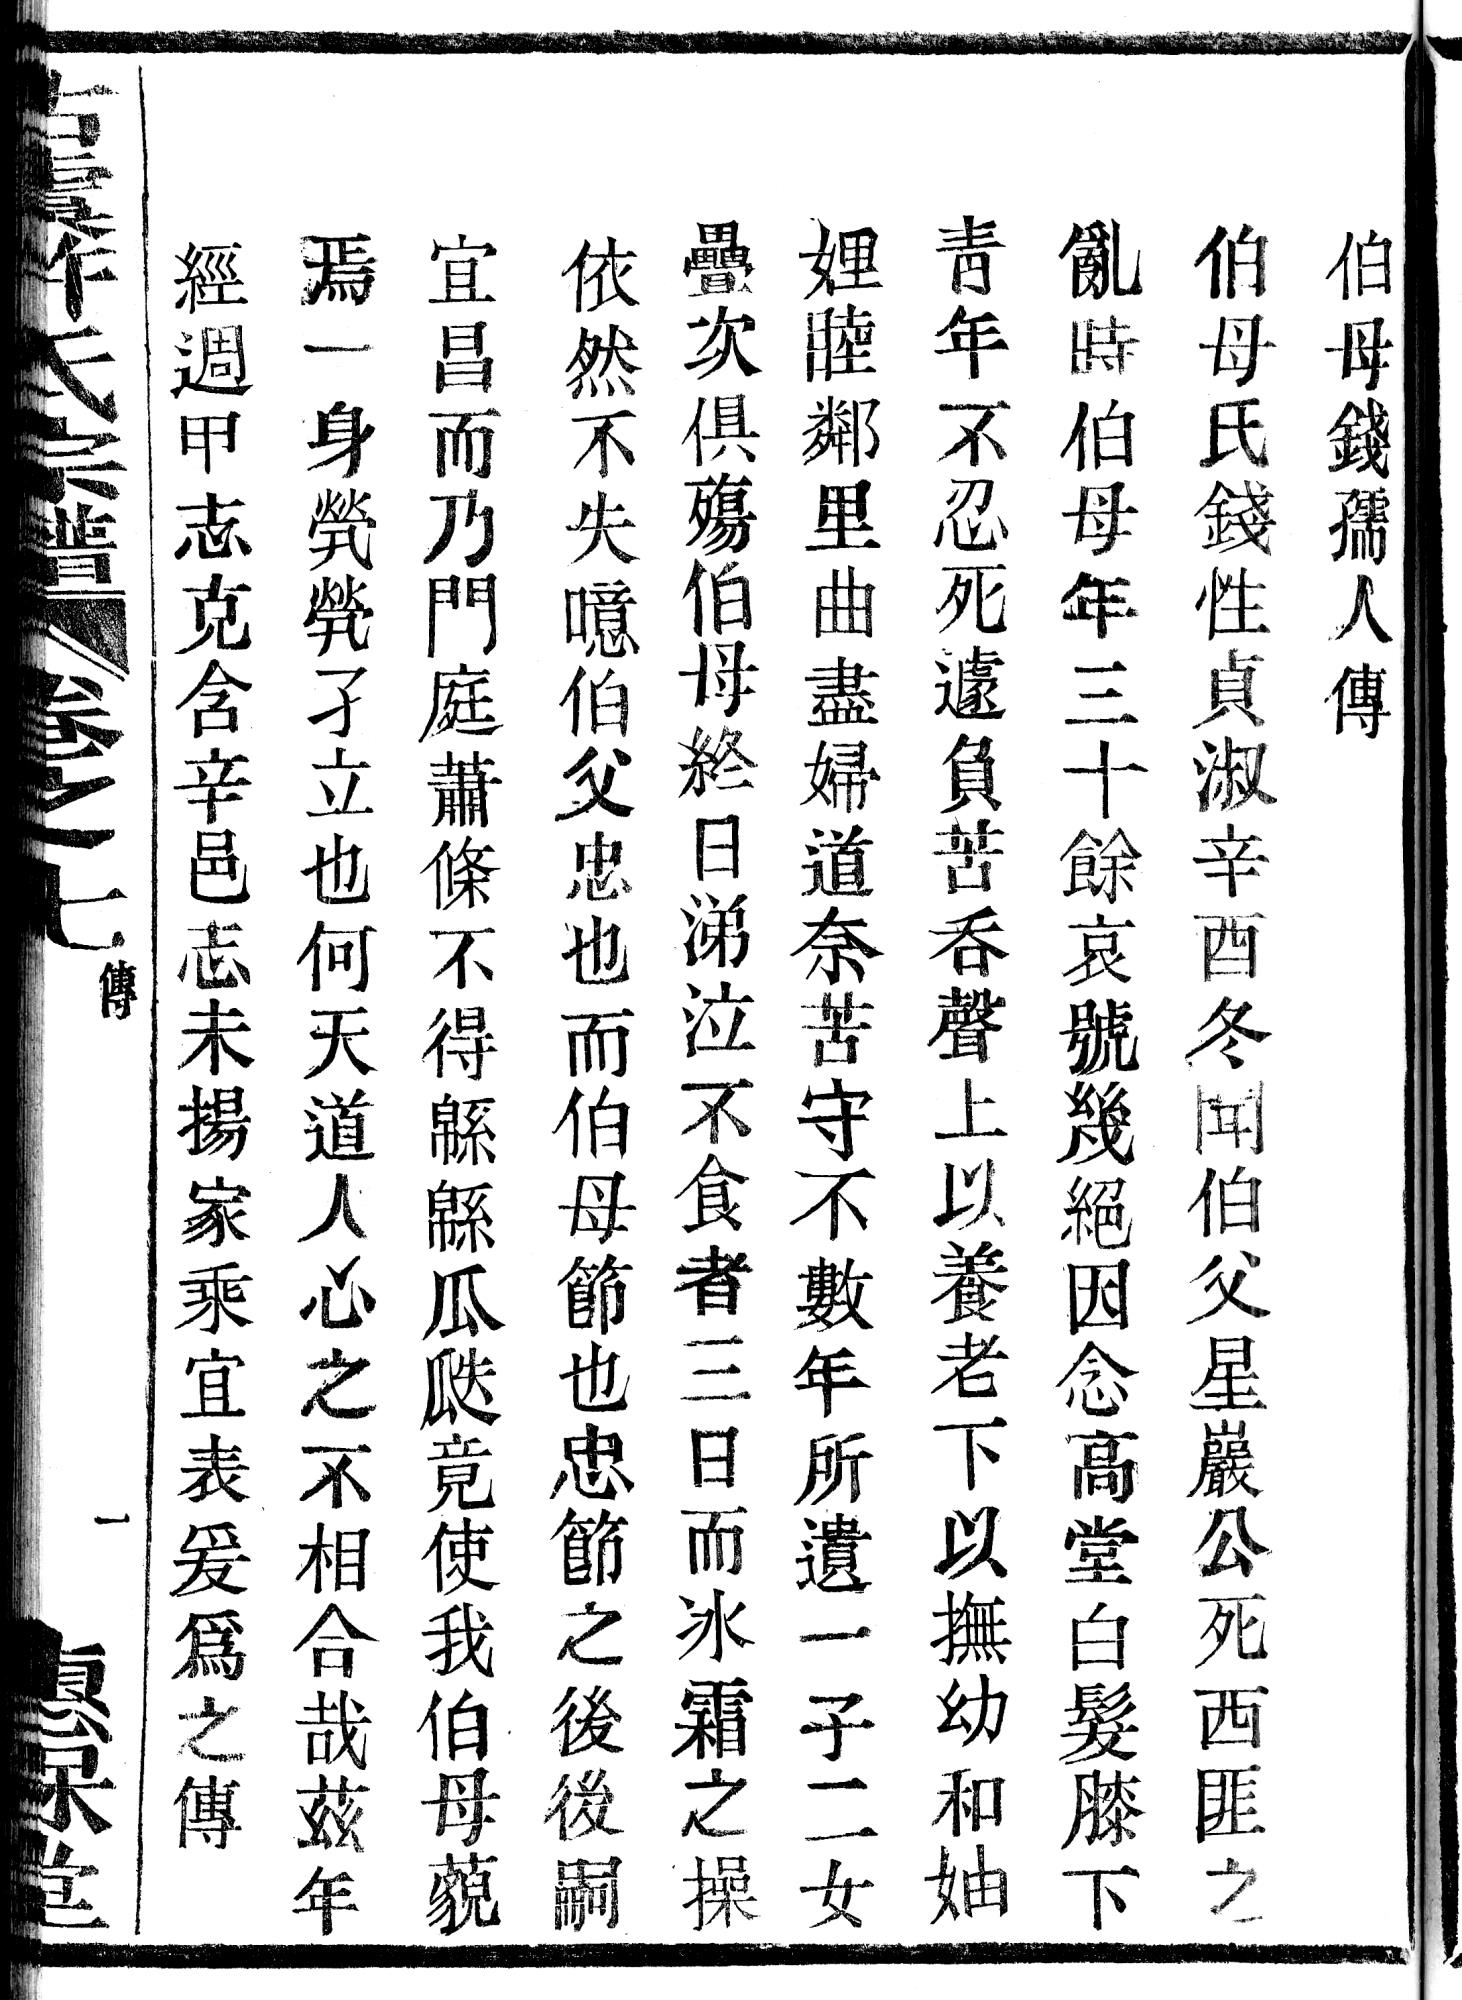 伯母錢孺人傳
伯母氏錢性貞淑辛酉冬聞伯父星巖公死西匪之
亂時伯母年三十餘哀號幾絕因念高堂白髮膝下
靑年不忍死遽負苦吞聲上以養老下以撫幼和妯
娌睦鄰里曲盡婦道奈苦守不數年所遺一子二女
疊次俱殤伯母終日涕泣不食者三日而冰霜之操
依然不失噫伯父忠也而伯母節也忠節之後後嗣
宜昌而乃門庭蕭條不得緜緜瓜瓞竟使我伯母藐
焉一身煢煢孑立也何天道人心之不相合哉茲年
經週甲志克含辛邑志未揚家乘宜表爰爲之傳
氏宗譜
卷之七
傳
一
惠保堂